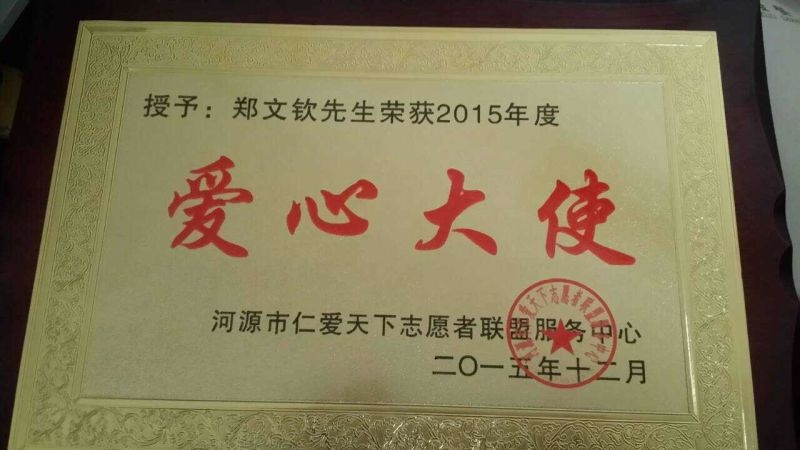 授予：郑文钦先生荣获2015年度
爱心大使
河源市仁爱天下志愿者联盟服务中心
二〇一五年十二月